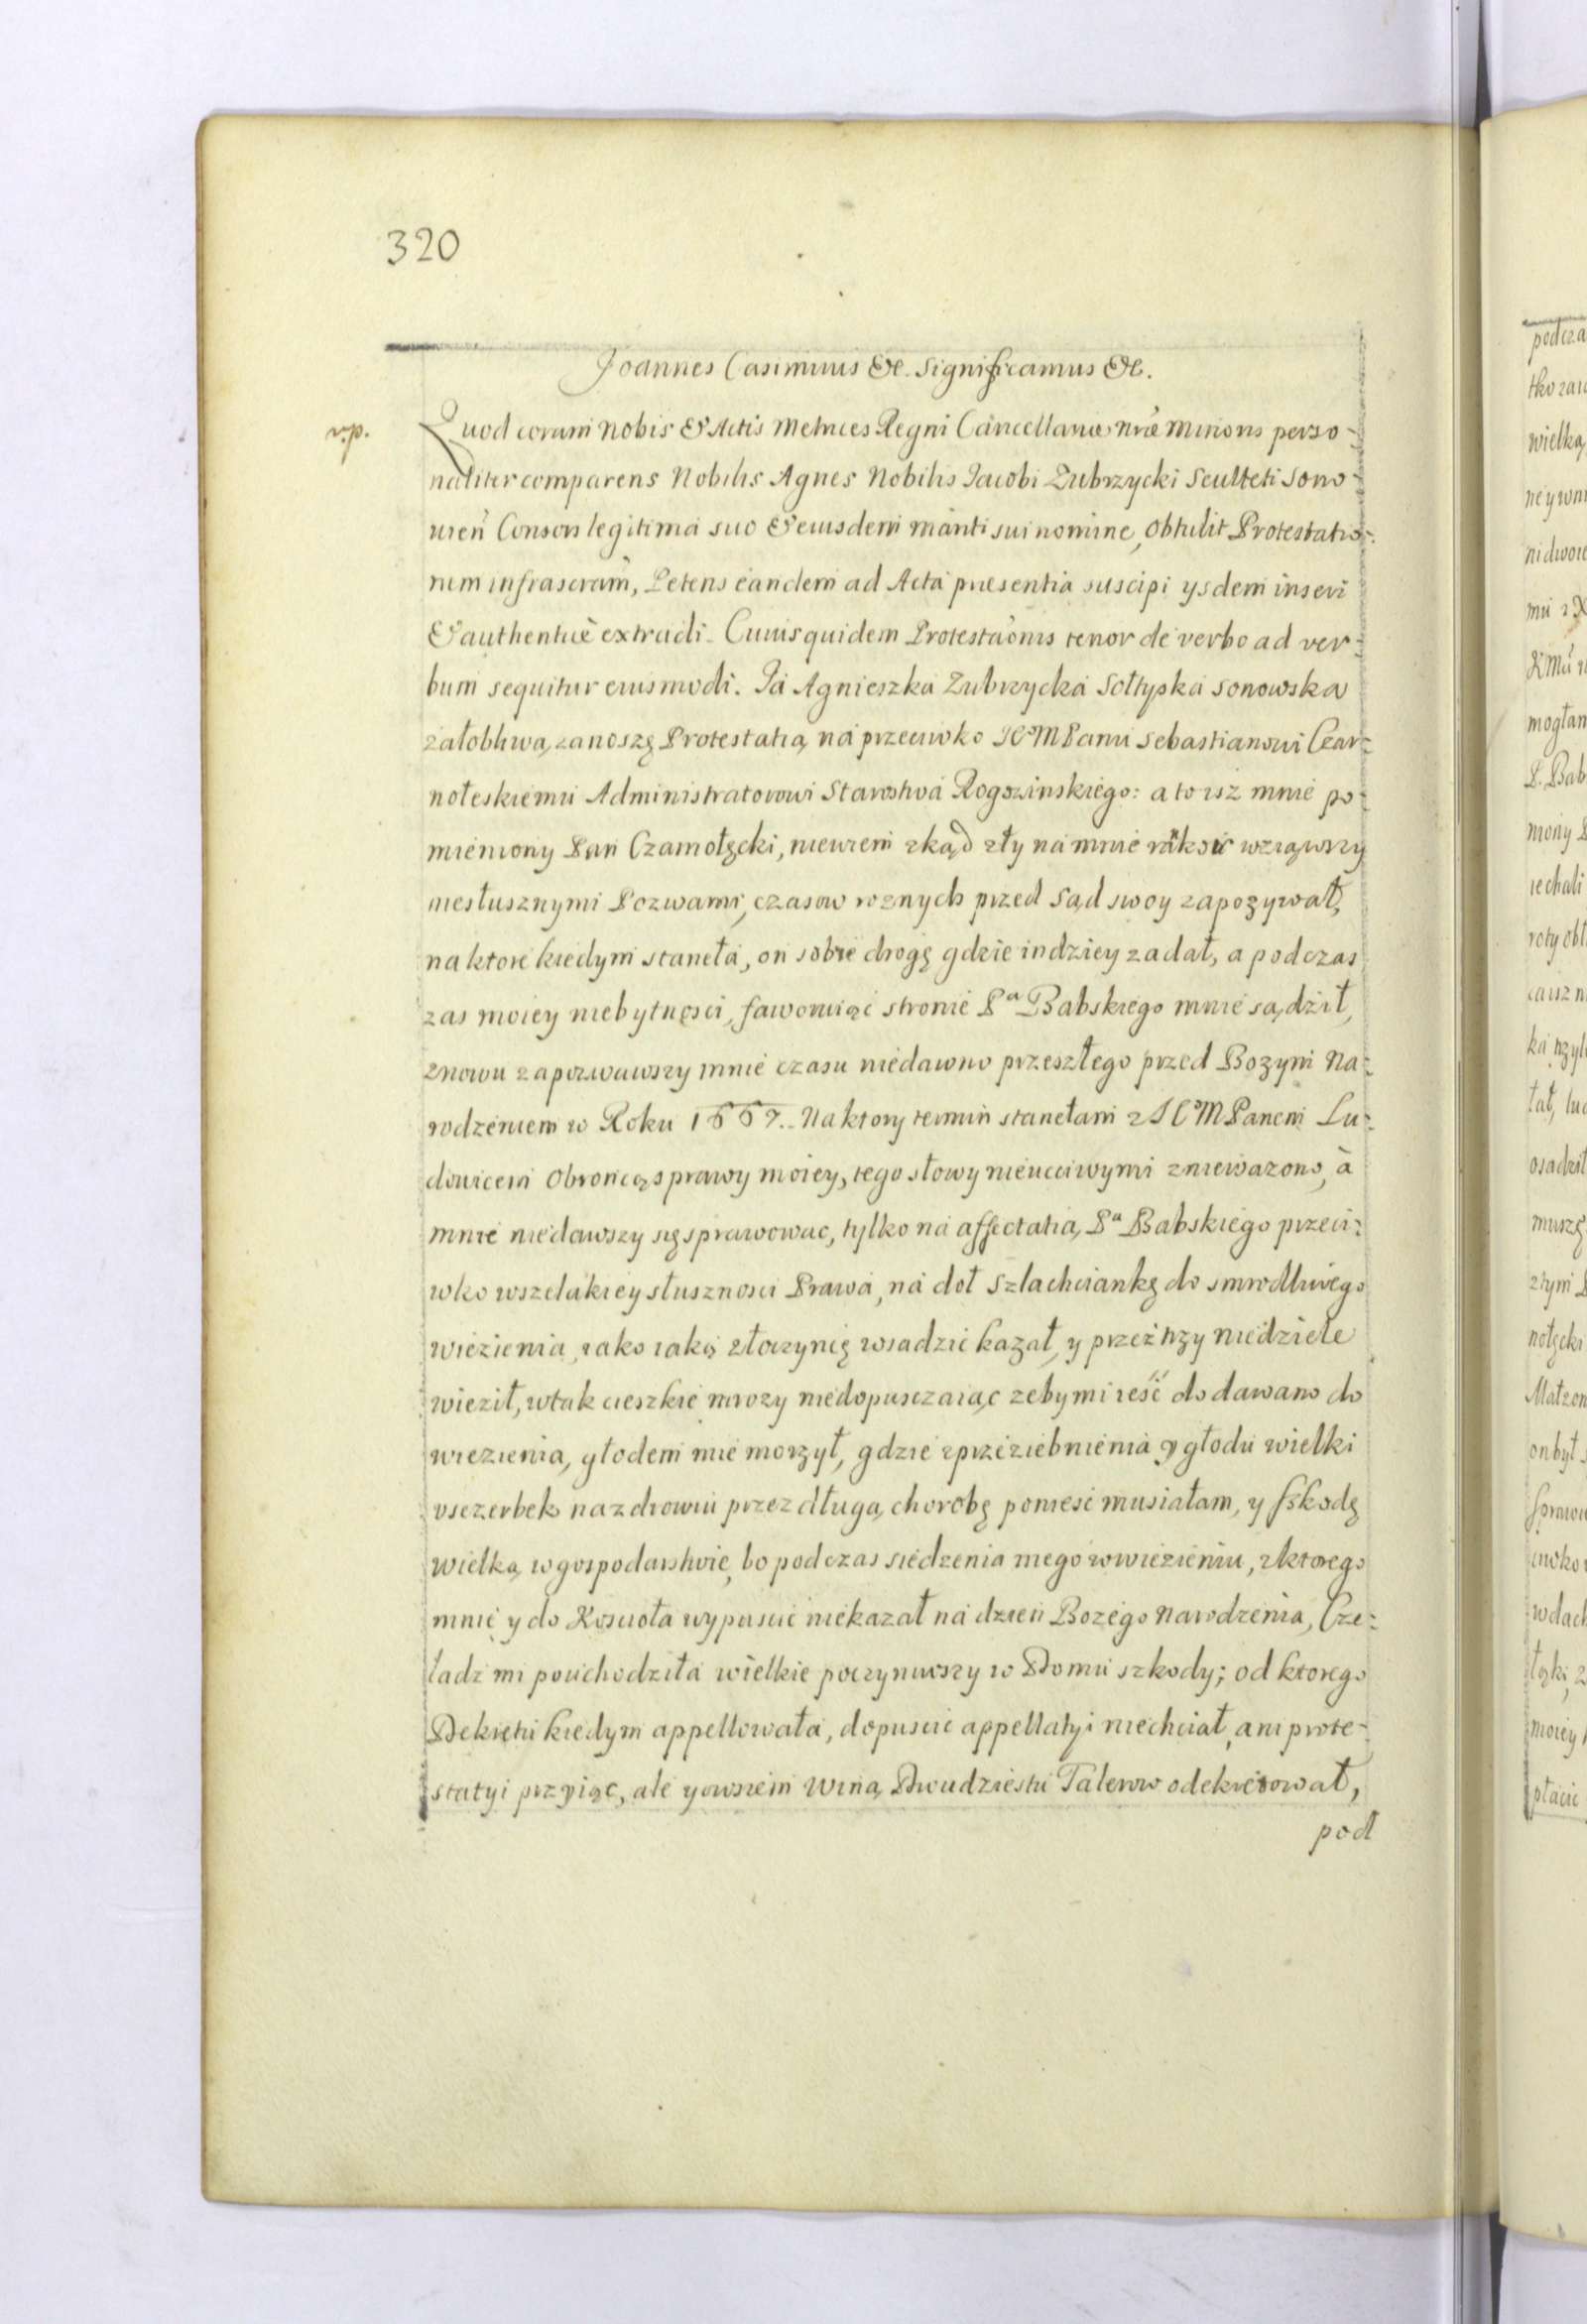 320
Joannes Casimirus &c. Significamus &c.
Quod coram nobis & Actis Metrices Regni Cancellariæ nræ minoris perso-
naliter comparens Nobilis Agnes Nobilis Jacobi Zubrzycki Sculteti Sono-
wień Consors legitima suo & eiusdem mariti sui nomine, obtulit Protestatio-
nem infrascram, Petens eandem ad Acta præsentia suscipi ysdem inseri
& authenticè extradi. Cuius quidem Protestaonis tenor de verbo ad ver-
bum sequitur eiusmodi. Ja Agnieszka Zubrzycka Sołtyska Sonowska
załobliwą zanoszę Protestatią na przeciwko JCMPanu Sebastianowi Czar-
nołeskiemu Administratorowi Starostwa Rogozinskiego: a to isz mnie po-
mieniony Pan Czarnołęcki, niewiem zkąd zły na mnie rąkor wziąwszy
niesłusznymi Pozwami, czasow roznych przed Sąd swoy zapozywał,
na ktore kiedym staneła, on sobie drogę gdzie indziey zadał, a podczas
zas moiey niebytnosci, faworuiąc stronie Pa Babskiego mnie sądził,
znowu zapozwawszy mnie czasu niedawno przeszłego przed Bozym Na-
rodzeniem w Roku 1667. Na ktory termin stanełam z JCMPanem Lu-
dowicem Obroncą sprawy moiey, tego słowy nieucciwymi zniewazono, à
mnie niedawszy się sprawowac, tylko na affectatią Pa Babskiego przeci-
wko wszelakiey słusznosci Prawa, na doł Szlachciankę do smrodliwego
wiezienia, iako iaką złoczynię wsadzić kazał, y przez trzy niedziele
wieził, w tak cieszkie mrozy niedopusczaiąc zeby mi ieść dodawano do
wiezienia, głodem mie morzył, gdzie z przeziebnienia y głodu wielki
vsczerbek na zdrowiu przez długą chorobę poniesć musiałam, y szkodę
wielką w gospodarstwie, bo podczas siedzenia mego w wiezieniu, z ktorego
mnie y do Koscioła wypuscić niekazał na dzien Bozego Narodzenia, Cze-
ladz mi pouchodziła wielkie poczyniwszy w Domu szkody; od ktorego
Dekretu kiedym appellowała, dopuscic appellatyi niechciał, ani prote-
statyi przyiąc, ale y owszem winą Dwudziestu Talerow odekretował,
pod